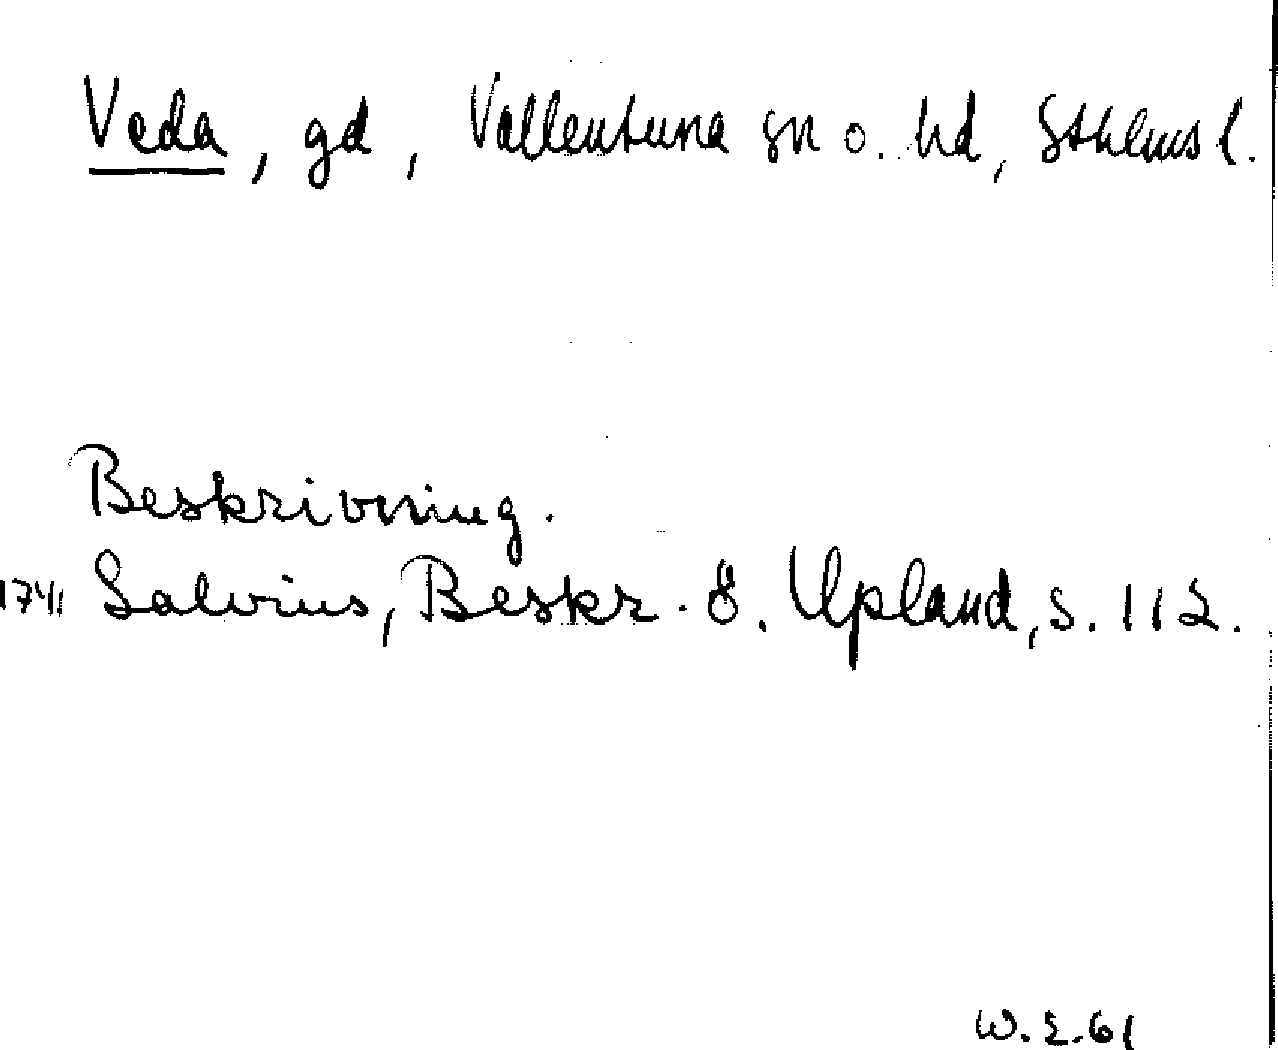 Veda, gd, Vallentuna sn o. hd, Sthlms l.
Beskrivning.
1741 Salvius, Beskr. ö. Upland, s. 112.
W. S. 61